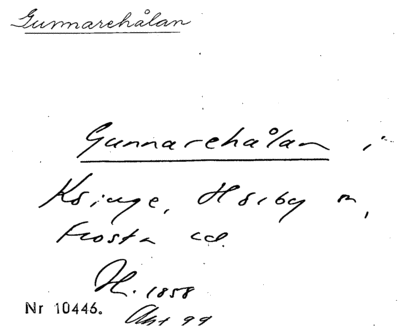 Gunnarehålan
Gunnarehålan i
Ksinge, Hörby sn,
Frosta hd.
H. 1858
Nr 10446.
Akt 99